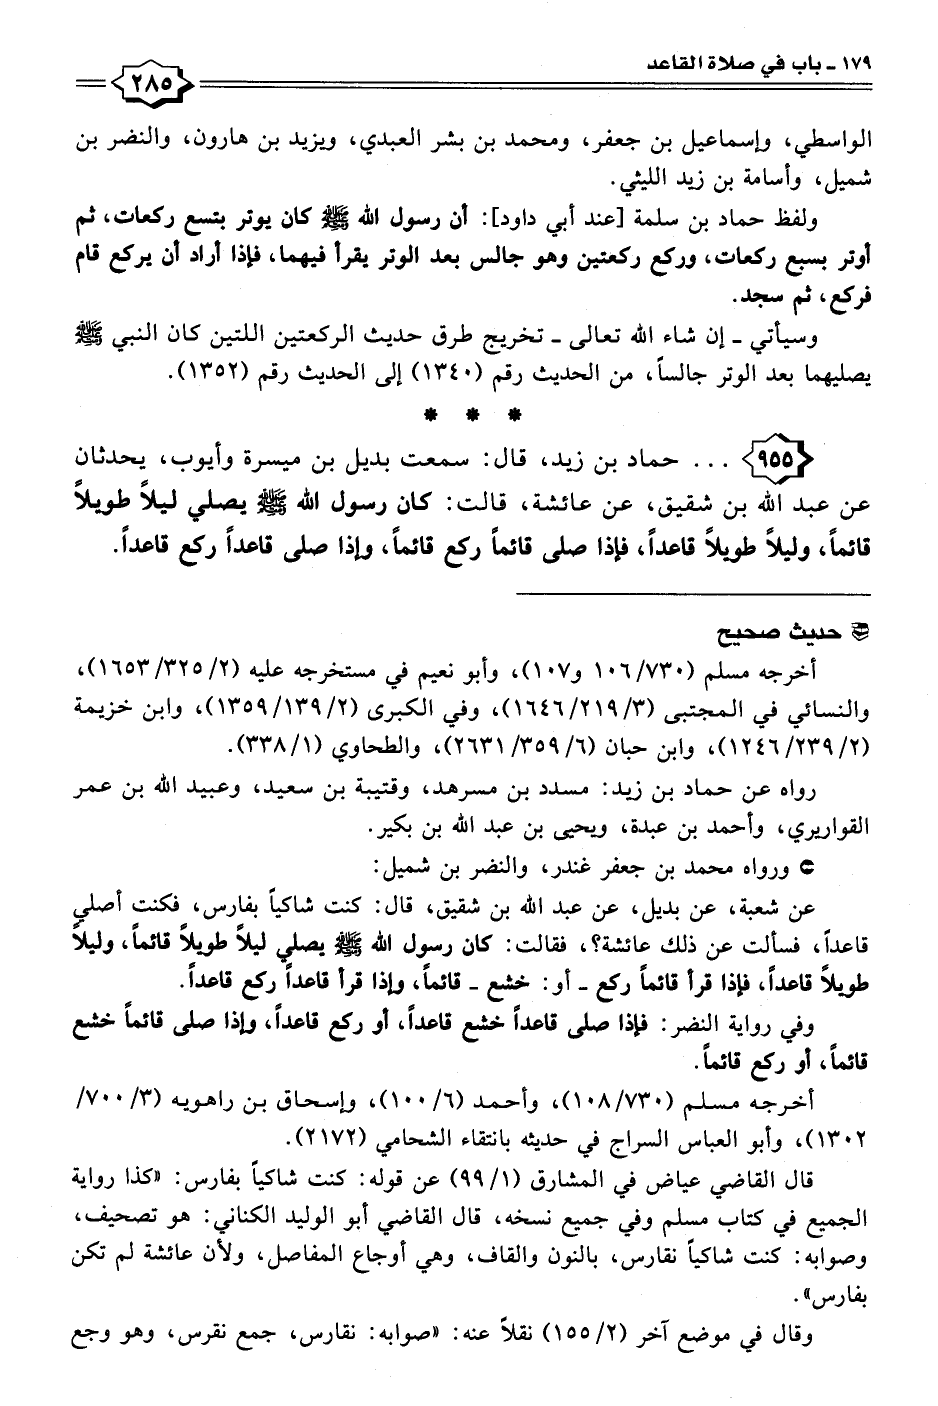 ١٧٩ ـ باب في صلاة القاعد
٢٨٥
الواسطي، وإسماعيل بن جعفر، ومحمد بن بشر العبدي، ويزيد بن هارون، والنضر بن
شميل، وأسامة بن زيد الليثي.
ولفظ حماد بن سلمة [عند أبي داود]: أن رسول الله ﷺ كان يوتر بتسع ركعات، ثم
أوتر بسبع ركعات، وركع ركعتين وهو جالس بعد الوتر يقرأ فيهما، فإذا أراد أن يركع قام
فركع، ثم سجد.
وسيأتي ـ إن شاء الله تعالى ـ تخريج طرق حديث الركعتين اللتين كان النبي ﷺ
يصليهما بعد الوتر جالساً، من الحديث رقم (١٣٤٠) إلى الحديث رقم (١٣٥٢).
* * *
٩٥٥ ... حماد بن زيد، قال: سمعت بديل بن ميسرة وأيوب، يحدثان
عن عبد الله بن شقيق، عن عائشة، قالت: كان رسول الله ﷺ يصلي ليلاً طويلاً
قائماً، وليلاً طويلاً قاعداً، فإذا صلى قائماً ركع قائماً، وإذا صلى قاعداً ركع قاعداً.
حديث صحيح
أخرجه مسلم (١٠٦/٧٣٠ و١٠٧)، وأبو نعيم في مستخرجه عليه (١٦٥٣/٣٢٥/٢)،
والنسائي في المجتبى (١٦٤٦/٢١٩/٣)، وفي الكبرى (١٣٥٩/١٣٩/٢)، وابن خزيمة
(١٢٤٦/٢٣٩/٢)، وابن حبان (٢٦٣١/٣٥٩/٦)، والطحاوي (٣٣٨/١).
رواه عن حماد بن زيد: مسدد بن مسرهد، وقتيبة بن سعيد، وعبيد الله بن عمر
القواريري، وأحمد بن عبدة، ويحيى بن عبد الله بن بكير.
ورواه محمد بن جعفر غندر، والنضر بن شميل:
عن شعبة، عن بديل، عن عبد الله بن شقيق، قال: كنت شاكياً بفارس، فكنت أصلي
قاعداً، فسألت عن ذلك عائشة؟، فقالت: كان رسول الله ﷺ يصلي ليلاً طويلاً قائماً، وليلاً
طويلاً قاعداً، فإذا قرأ قائماً ركع ـ أو: خشع ـ قائماً، وإذا قرأ قاعداً ركع قاعداً.
وفي رواية النضر: فإذا صلى قاعداً خشع قاعداً، أو ركع قاعداً، وإذا صلى قائماً خشع
قائماً، أو ركع قائماً.
أخرجه مسلم (١٠٨/٧٣٠)، وأحمد (١٠٠/٦)، وإسحاق بن راهويه (٧٠٠/٣/
١٣٠٢)، وأبو العباس السراج في حديثه بانتقاء الشحامي (٢١٧٢).
قال القاضي عياض في المشارق (٩٩/١) عن قوله: كنت شاكياً بفارس: «كذا رواية
الجميع في كتاب مسلم وفي جميع نسخه، قال القاضي أبو الوليد الكناني: هو تصحيف،
وصوابه: كنت شاكياً نقارس، بالنون والقاف، وهي أوجاع المفاصل، ولأن عائشة لم تكن
بفارس».
وقال في موضع آخر (١٥٥/٢) نقلاً عنه: «صوابه: نقارس، جمع نقرس، وهو وجع